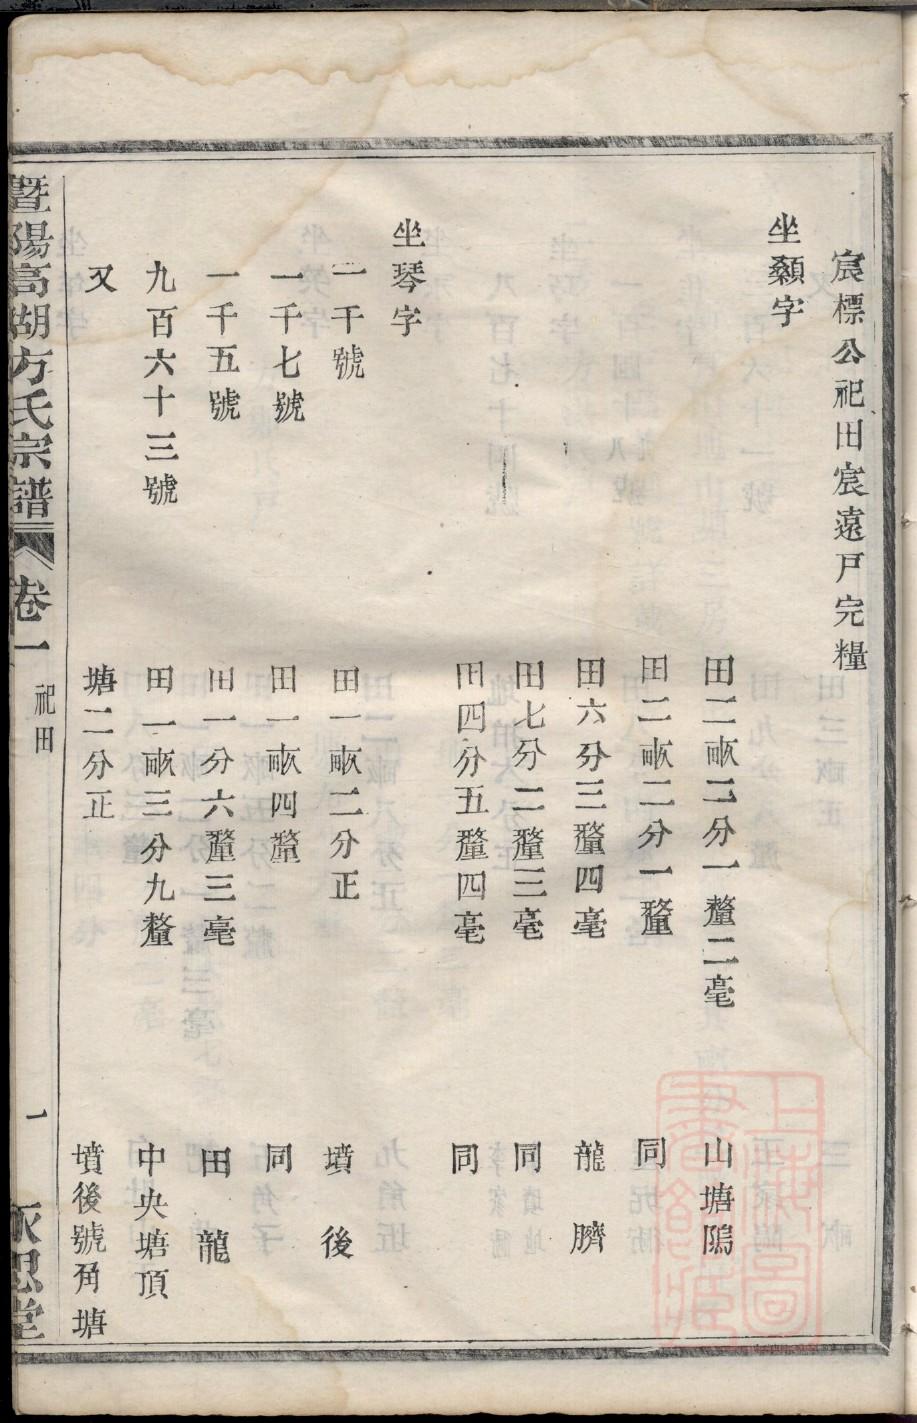 宸標公祀田宸遠戸完糧
坐纇字
田二畝二分一釐二毫 山塘隝
田二畝二分一釐 同
田六分三釐四毫 龍臍
田七分二釐三毫 同
田四分五釐四毫 同
坐琴字
一千號 田一畝二分正 墳後
一千七號 田一畝四釐 同
一千五號 田一分六釐三毫 田龍
九百六十三號 田一畝三分九釐 中央塘頂
又 塘二分正 墳後號角塘
暨陽高湖方氏宗譜 卷一 祀田 一 永思堂
上海圖書館藏